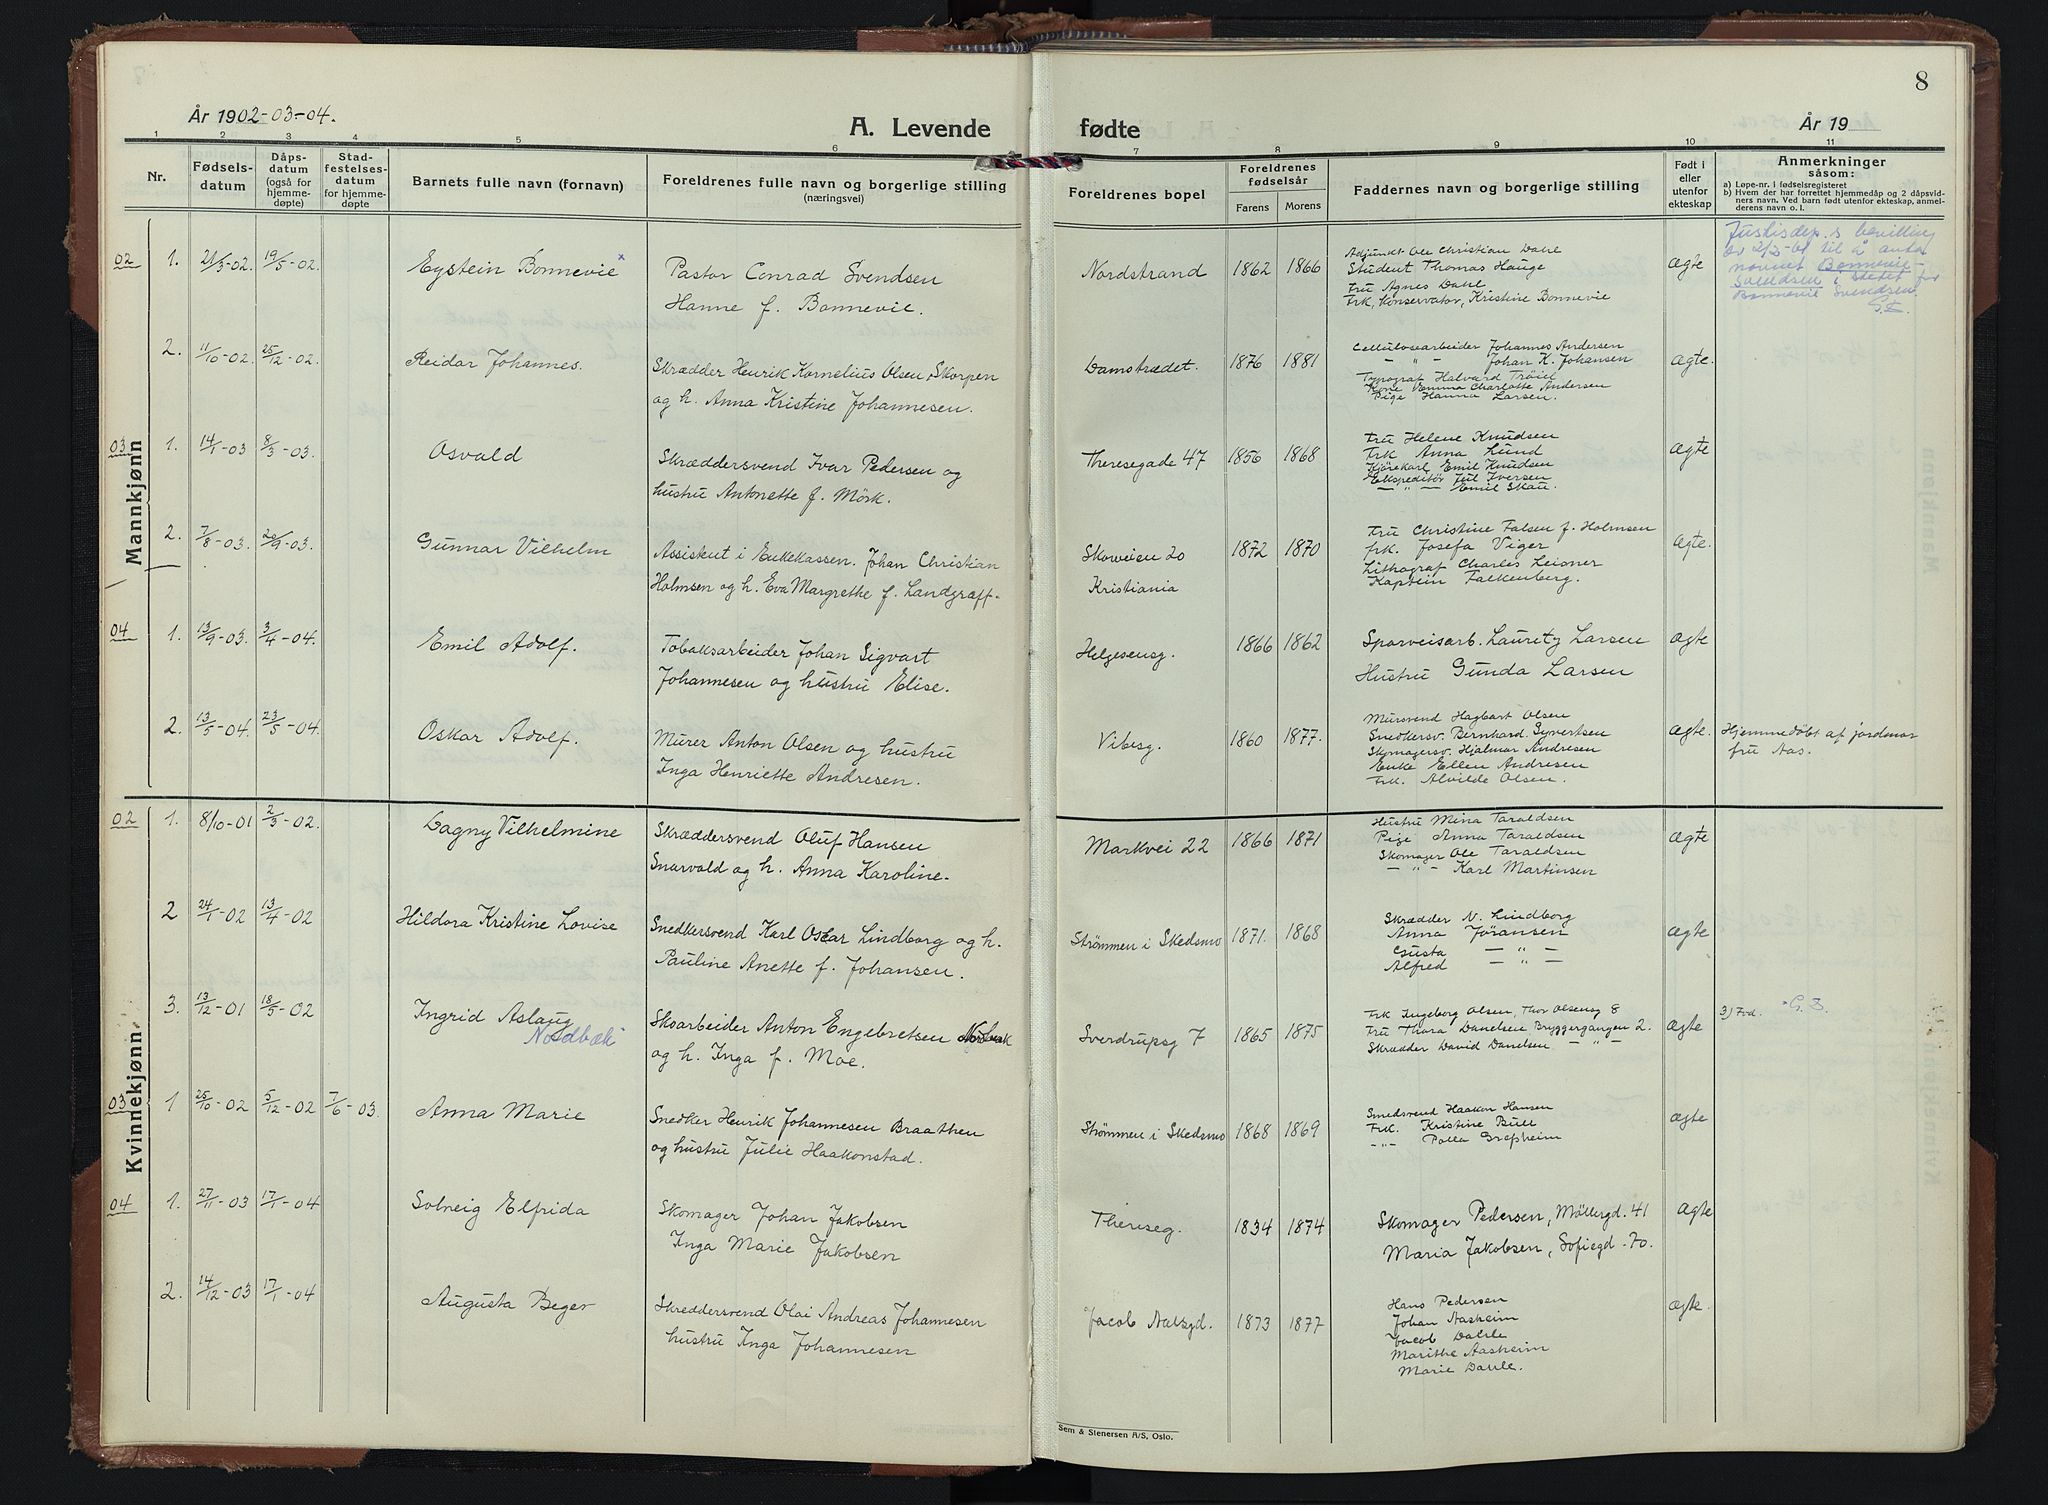 8
År 1902-03-04.
A. Levende fødte
År 19
1 2 3 4 5 6 7 8 9 10 11
Nr.
Fødsels-
datum
Dåps-
datum
(også for
hjemme-
døpte)
Stad-
festelses-
datum
for hjemme-
døpte
Barnets fulle navn (fornavn)
Foreldrenes fulle navn og borgerlige stilling
(næringsvei)
Foreldrenes bopel
Foreldrenes
fødselsår
Farens Morens
Faddernes navn og borgerlige stilling
Født i
eller
utenfor
ekteskap
Anmerkninger
såsom:
a) Løpe-nr. i fødselsregisteret
b) Hvem der har forrettet hjemmedåp og 2 dåpsvid-
ners navn. Ved barn født utenfor ekteskap, anmel-
derens navn o. l.
Mannkjønn
02 1. 21/3-02. 19/5-02. Eystein Bonnevie x
Pastor Conrad Svendsen
Hanne f. Bonnevie.
Nordstrand 1862 1866
Adjunkt Ole Christian Dahl
Student Thomas Hauge
Fru Agnes Dahl
Frk. Konservator, Kristine Bonnevie
Ægte
Justisdep.s bevilling
av 2/3-61 til å anta
navnet Bonnevie-
Svendsen i stedet for
Bonnevie Svendsen.
2. 11/10-02. 25/12-02. Reidar Johannes.
Skrædder Henrik Kornelius Olsen Skorpen
og h. Anna Kristine Johannesen.
Damstrædet. 1876 1881
Cellulosearbeider Johannes Andersen
- " - Johan K. Johansen
Typograf Halvard Trøiel
Kone Emma Charlotte Andersen
Pige Hanna Larsen.
Ægte.
03 1. 14/1-03 8/3-03. Osvald
Skræddersvend Ivar Pedersen og
hustru Antonette f. Mörk.
Theresegade 47 1856 1868
Fru Helene Knudsen
Frk Anna Lund
Kjørekarl Emil Knudsen
Ekspeditör Jul Iversen
- " - Emil Skau.
Ægte
2. 7/8-03. 20/9-03. Gunnar Vilhelm
Assistent i Enkekassen. Johan Christian
Holmsen og h. Eva Margrethe f. Landgraff.
Skoveien 20
Kristiania
1872 1870
Fru Christine Falsen f. Holmsen
Frk. Josefa Viger
Lithograf Charles Leisner
Kaptein Falkenberg.
Ægte.
04 1. 13/9-03. 3/4-04. Emil Adolf.
Tobaksarbeider Johan Sigvart
Johannesen og hustru Elise.
Helgesensg. 1866 1862
Sporveisarb. Lauretz Larsen
Hustru Gunda Larsen
Ægte
2. 13/5-04. 23/5-04 Oskar Adolf.
Murer Anton Olsen og hustru
Inga Henriette Andresen.
Vibesg. 1860 1877.
Mursvend Hagbart Olsen
Snedkersv. Bernhard Syvertsen
Skomagersv. Hjalmar Andresen
Enke Ellen Andresen
Frk. Alvilde Olsen.
Ægte.
Hjemmedöbt af jordmor
fru Aas.
Kvinnekjønn
02 1. 8/10-01 2/3-02. Dagny Vilhelmine
Skræddersvend Oluf Hansen
Snarvold og h. Anna Karoline.
Markvei 22 1866 1871
Hustru Mina Taraldsen
Pige Anna Taraldsen
Skomager Ole Taraldsen
- " - Karl Martinsen
Ægte
2 24/1-02 13/4-02 Hildora Kristine Lovise
Snedkersvend Karl Oscar Lindborg og h.
Pauline Anette f. Johansen.
Strømmen i Skedsmo 1871. 1868
Skrædder N. Lindborg
Anna Jöransen
Gusta - " -
Alfred - " -
Ægte
3. 13/12-01 18/5-02 Ingrid Aslaug
Nordbæk
Skoarbeider Anton Engebretsen Nordbæk
og h. Inga f. Moe.
Sverdrupsg 7 1865 1875
Frk Ingeborg Olsen, Thor Olsensg 8
Fru Thora Danelsen Bryggergangen 2.
Skrædder David Danelsen - " -
Ægte
3) Fød.
03 1 25/10-02 5/12-02 7/6-03. Anna Marie
Snedker Henrik Johannesen Braathen
og hustru Julie Haakonstad.
Strømmen i Skedsmo 1868 1869
Smedsvend Haakon Hansen
Frk. Kristine Bull
- " - Polla Grepheim
Ægte
04 1. 27/11-03 17/1-04 Solveig Elfrida
Skomager Johan Jakobsen
Inga Marie Jakobsen
Thereseg. 1834 1874
Skomager Pedersen, Möllergd. 41
Maria Jakobsen, Sofiegd. 70.
Ægte
2. 14/12-03 17/1-04 Augusta Beger
Skreddersvend Olai Andreas Johannesen
hustru Inga Johannesen
Jacob Aalsgd. 1873 1877
Hans Pedersen
Johan Aasheim
Jacob Dahle
Marithe Aasheim
Marie Dahle.
Ægte.
Sem & Stenersen A/S, Oslo.